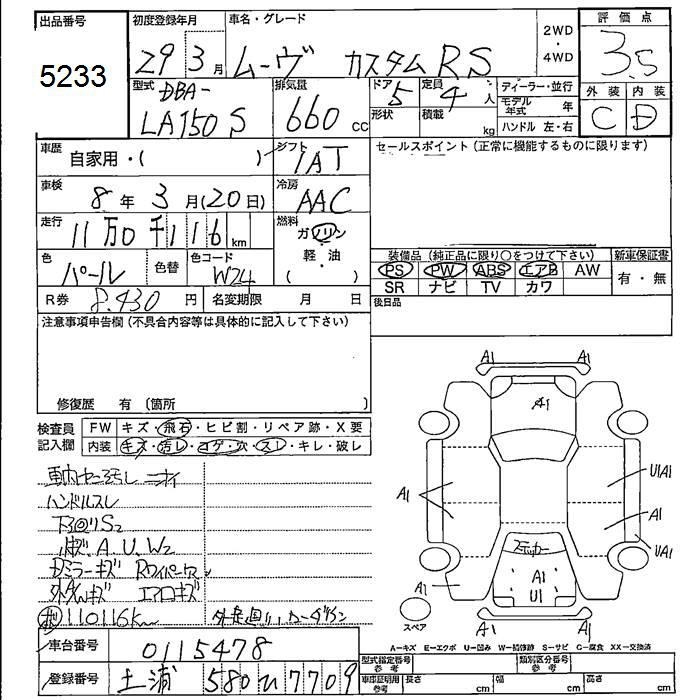 出品番号 初度登録年月 車名・グレード 2WD・4WD 評価点
5233 29 3月 ムーヴ カスタム RS 3.5
型式 DBA- LA150S 排気量 660 cc ドア 5 形状 定員 4 人 積載 kg ディーラー・並行 モデル年式 年 ハンドル 左・右 外装 C 内装 D
車歴 自家用・( ) シフト IAT セールスポイント(正常に機能するものに限ります)
車検 8年 3月(20日) 冷房 AAC
走行 11万0千116 km 燃料 ガソリン・軽・油
色 パール 色替 色コード W24 装備品(純正品に限り○をつけて下さい) 新車保証書
PS PW ABS エアB AW 有・無
SR ナビ TV カワ
R券 8,430 円 名変期限 月 日 後日品
注意事項申告欄(不具合内容等は具体的に記入して下さい)
修復歴 有 (箇所 )
検査員記入欄 FW キズ・飛石・ヒビ割・リペア跡・X要
内装 キズ・汚レ・コゲ・穴・スレ・キレ・破レ
車内ヤニ汚レ ニオイ
ハンドルスレ
下回りS2
A.U.W2
ドミラーキズ Rワイパー
エアロキズ
110116km
A1 A1
A1
A1 U1A1
A1
ステッカー U1A1
A1 A1
U1
スペア A1 A1
A-キズ E-エクボ U-凹み W-補修跡 S-サビ C-腐食 XX-交換済
車台番号 0115478 型式指定番号 参考 類別区分番号 参考
登録番号 土浦 580 い 7709 車庫証明用 参考 長さ cm 幅 cm 高さ cm